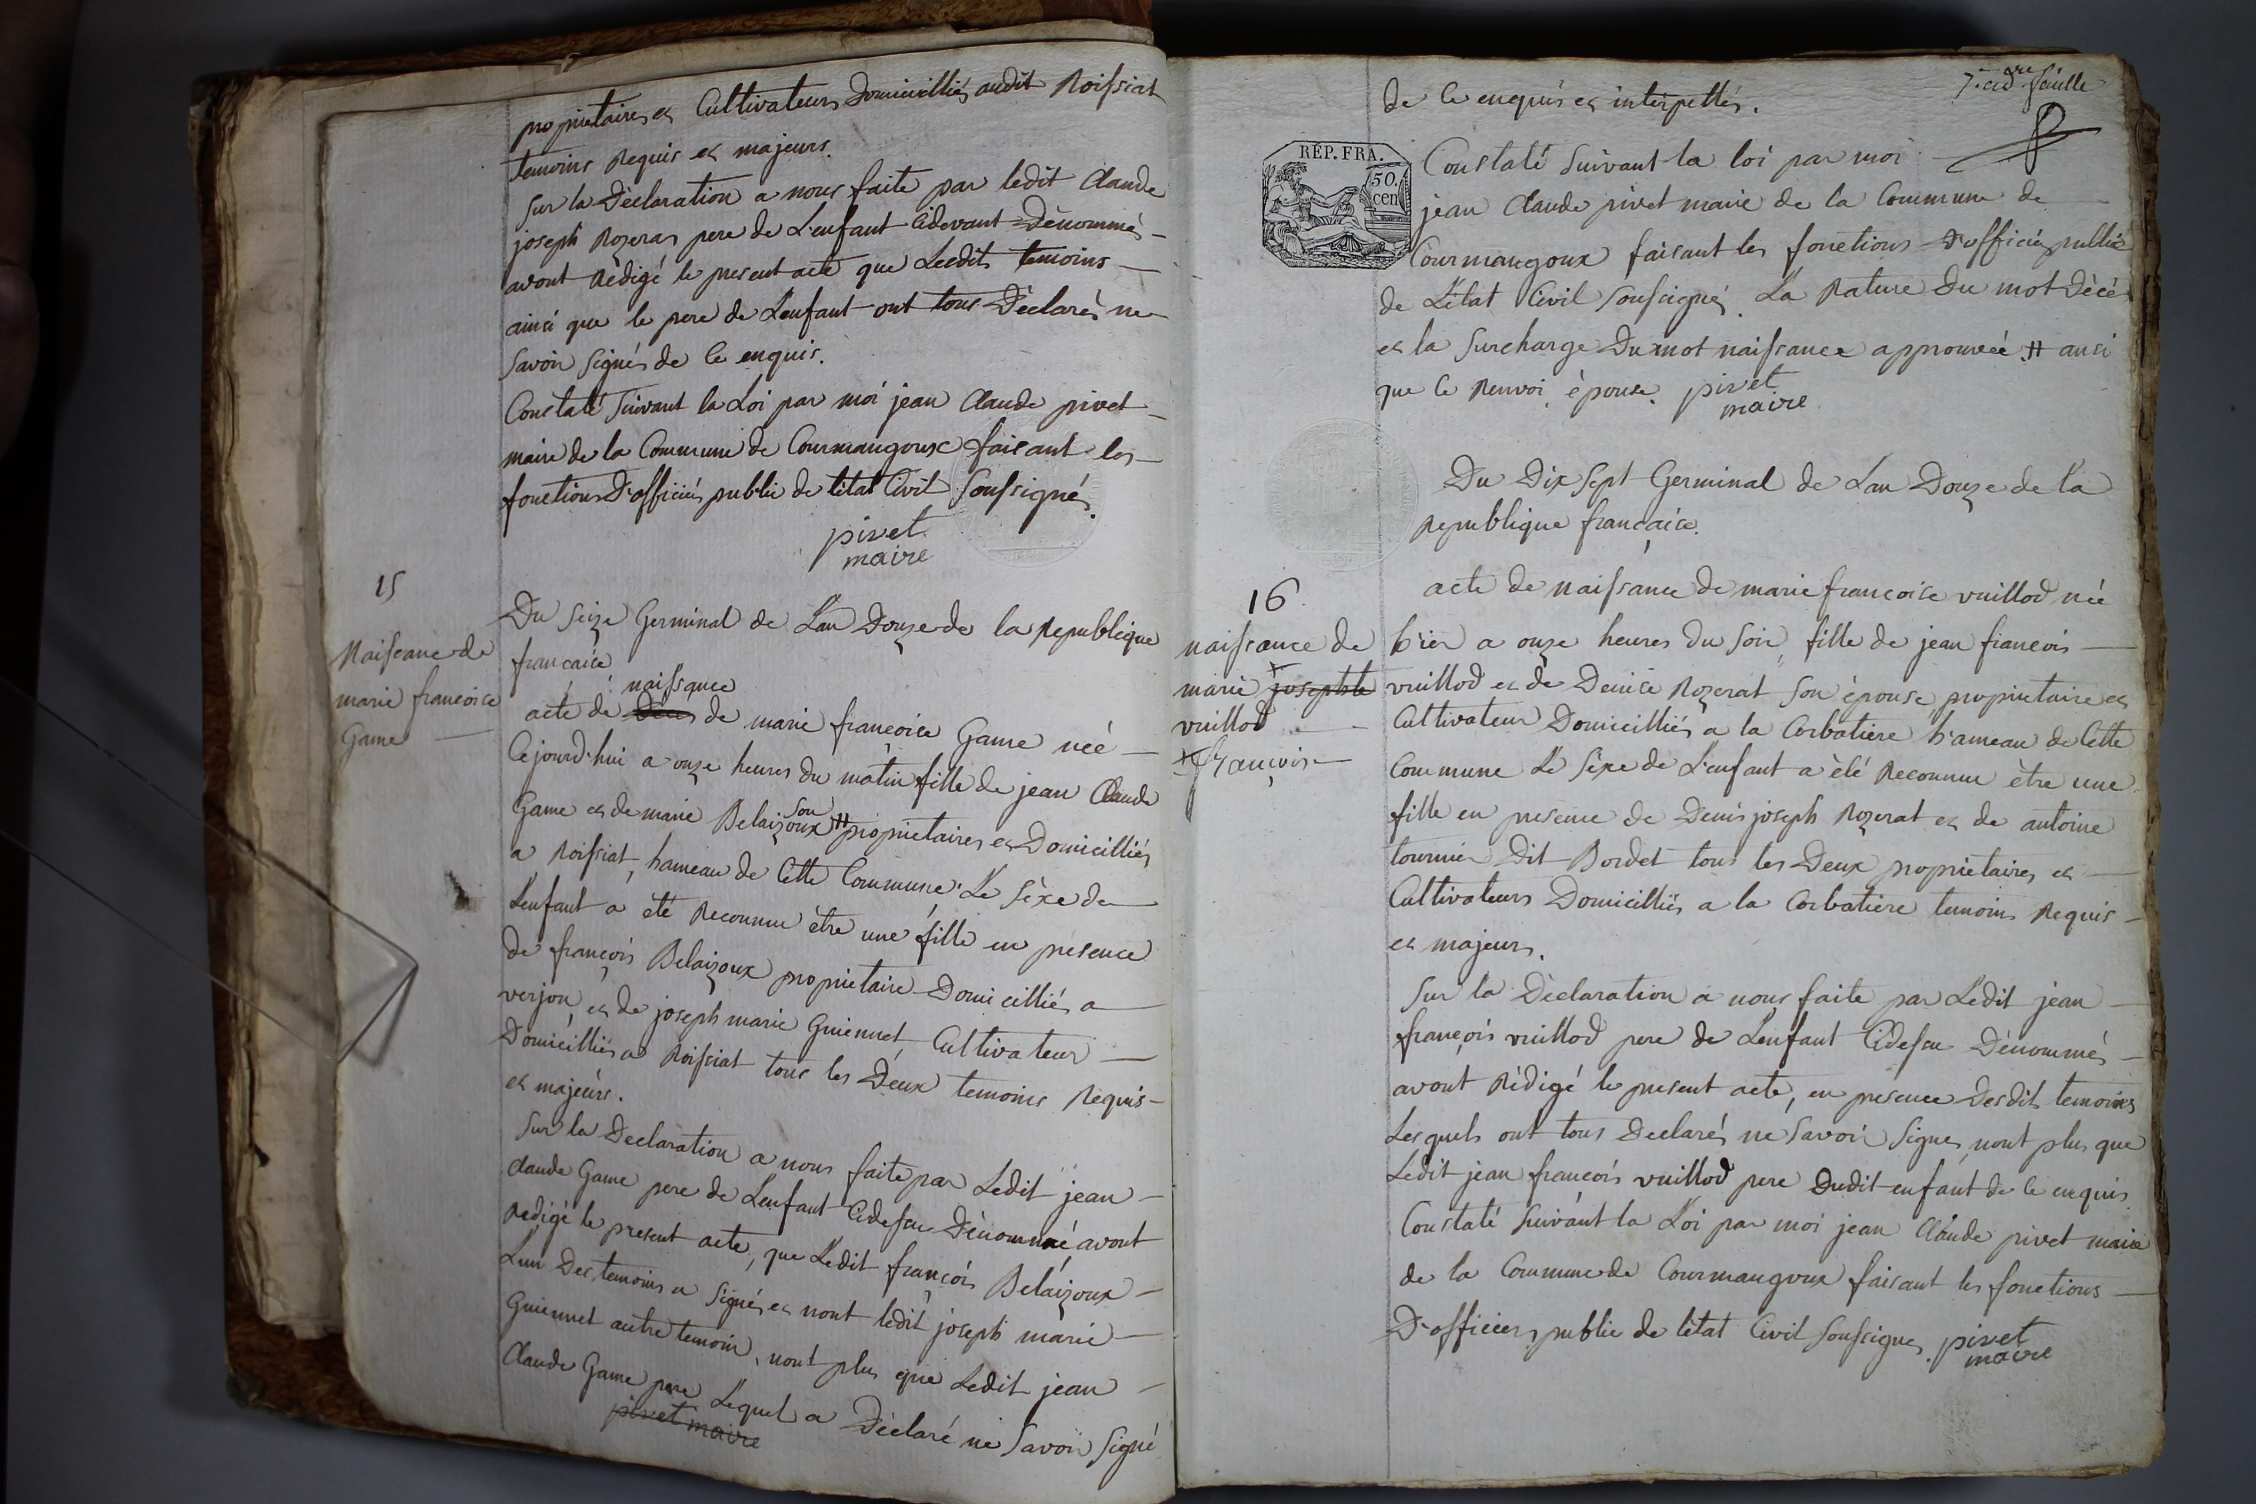 propriétaires et Cultivateurs Domicilliés audit Roissiat
temoins Requis et majeurs.
Sur la Déclaration a nous faite par ledit Claude
joseph Rozeras pere de L'enfant Cidevant Dénommés
avont Rédigé le present acte que Lesdits temoins
ainsi que le pere de L'enfant ont tous Déclarés ne
Savoir Signés de Ce enquis.
Constaté Suivant la Loi par moi jean Claude pivet
maire de la Commune de Courmangoux faisant les
fonctions D'officiés public de l'état Civil Soussigné.
pivet
maire
15
Naissance de
marie francoise
Game
Du Seize Germinal de L'an Douze de la Republique
francaise
naissance
acte de Décés de marie françoise Game née
Cejourd'hui a onze heures du matin fille de jean Claude
son
Game et de marie Belaizoux # propriétaires et Domicilliés
a Roissiat, hameau de Cette Commune. Le Séxe de
L'enfant a été Reconnue étre une fille en présence
de françois Belaizoux propriétaire Domicilliés a
verjon, et de joseph marie Guiennet Cultivateur
Domicilliés a Roissiat tous les Deux temoins Requis
et majeurs.
Sur la Declaration a nous faite par Ledit jean
Claude Game pere de L'enfant Cidessu Dénommé avont
Redigé le present acte, que Ledit françois Belaizoux
L'un Des temoins a Signés et nont ledit joseph marie
Guiennet autre temoin, nont plus que Ledit jean
Claude Game pere Lequel a Déclaré ne Savoir Signé
pivet maire
7.e et d.re feuille
de Ce enquis et interpellés.
RÉP. FRA.
50.
cen
Constaté Suivant la loi par moi
jean Claude pivet maire de la Commune de
Courmangoux faisant les fonctions D'officiés public
de L'état Civil Soussigné. La Rature Du mot Décé
et la Surcharge Du mot naissance approuvée # ansi
que le Renvoi épouse. pivet
maire
Du Dix Sept Germinal de L'an Douze de la
Republique française.
16
naissance de
marie josephte
vuillod
françoise
acte de naissance de marie francoise vuillod née
hier a onze heures du Soir, fille de jean francois
vuillod et de Denise Rozerat Son épouse propriétaire et
Cultivateur Domicilliés a la Corbatiere hameau de Cette
Commune Le Séxe de L'enfant a été Reconnue étre une
fille en presence de Denis joseph Rozerat et de antoine
tournier Dit Bordet tous les Deux propriétaires et
Cultivateurs Domicilliés a la Corbatiere temoins Requis
et majeurs.
Sur la Déclaration a nous faite par Ledit jean
françois vuillod pere de L'enfant Cidessu Dénommés
avont Rédigé le present acte, en presence Desdits temoins
Lesquels ont tous Declarés ne Savoir Signés nont plus que
Ledit jean francois vuillod pere Dudit enfant de Ce enquis
Constaté Suivant la Loi par moi jean Claude pivet maire
de la Commune de Courmangoux faisant les fonctions
D'officiers public de l'état Civil Soussignes. pivet
maire